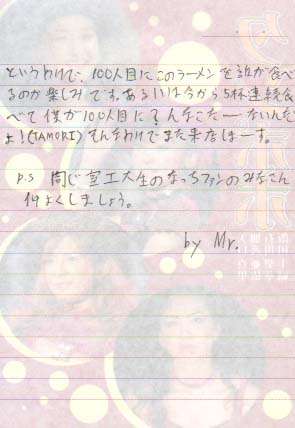 ・・・
というわけで、100人目にこのラーメンを誰が食べ
るのか楽しみです。あるいは今から5杯連続食
べて僕が100人目に？んなこたーないんだ
よ！(TAMORI) そんなわけでまた来店しまーす。
P.S 同じ室工大生のなっちファンのみなさん
仲よくしましょう。
by Mr.